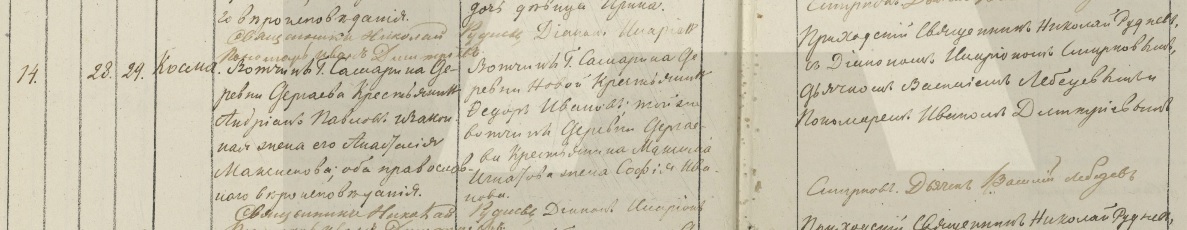 го вѣроисповѣданія.
Священникъ Николай
Пономарь Иванъ Дмитріевъ
14. 23. 29. Косма.
Вотчины Г. Самарина Де-
ревни Дергаева Крестьянинъ
Андріанъ Павловъ и закон-
ная жена его Анастасія
Максимова; оба православ-
наго вѣроисповѣданія.
Священникъ Николай
дочь дѣвица Ирина.
Рудневъ Діаконъ Иларіонъ
Вотчины Г. Самарина Де-
ревни Новой Крестьянинъ
Ѳедоръ Ивановъ; той же
вотчины Деревни Дергае-
ва Крестьянина
Игнатова жена Софія Ива-
нова.
Рудневъ Діаконъ Иларіонъ
Приходскій Священникъ Николай Рудневъ,
съ Діакономъ Иларіономъ Смирновымъ,
Дьячкомъ Василіемъ Лебедевымъ и
Пономаремъ Иваномъ Дмитріевымъ
Смирновъ. Дьячекъ Василій Лебедевъ
Приходскій Священникъ Николай Рудневъ,